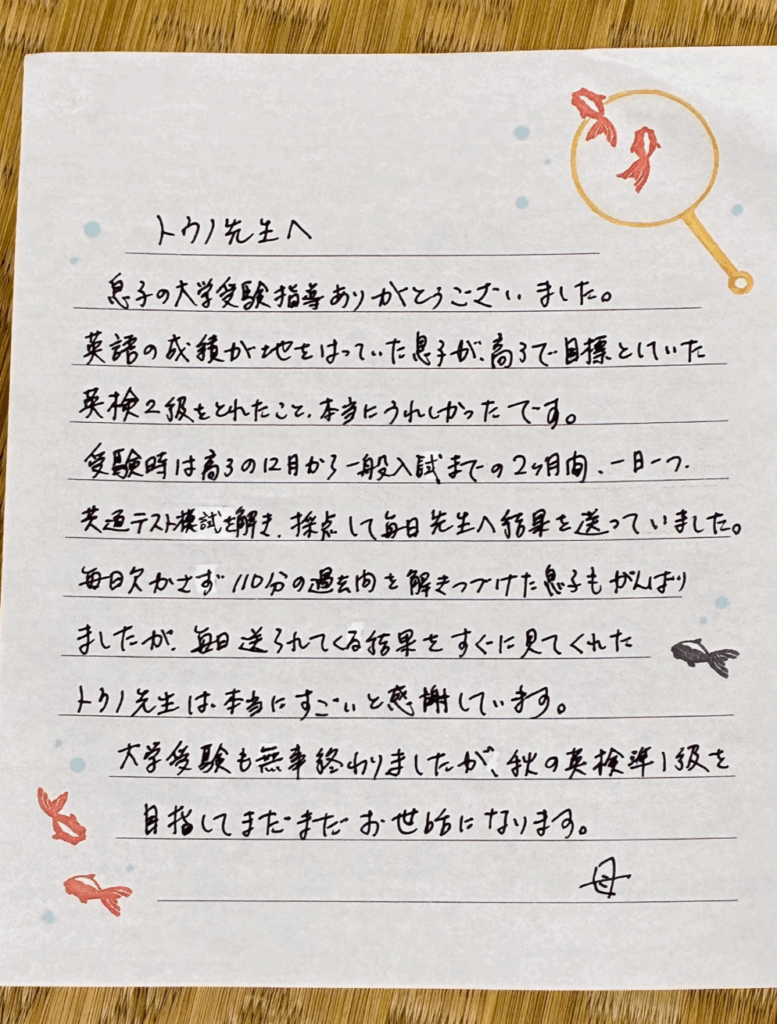 トウノ先生へ
息子の大学受験指導ありがとうございました。
英語の成績が地をはっていた息子が、高3で目標としていた
英検2級をとれたこと、本当にうれしかったです。
受験時は高3の12月から一般入試までの2ヶ月間、一日一つ、
共通テスト模試を解き、採点して毎日先生へ結果を送っていました。
毎日欠かさず110分の過去問を解きつづけた息子もがんばり
ましたが、毎日送られてくる結果をすぐに見てくれた
トウノ先生は、本当にすごいと感謝しています。
大学受験も無事終わりましたが、秋の英検準1級を
目指してまだまだお世話になります。
母